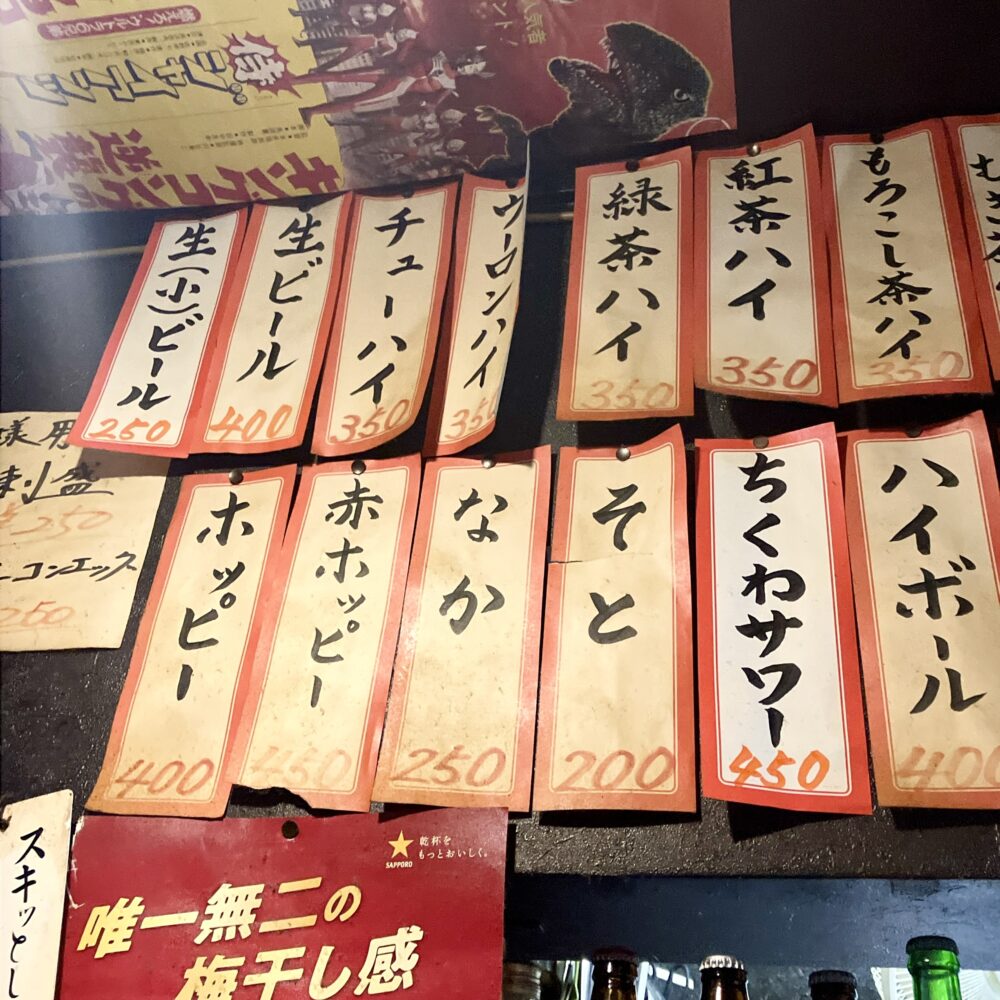 燃える
侍
ジャイアンツ
キングコングの
逆襲
人気者
生(小)ビール
250
生ビール
400
チューハイ
350
ウーロンハイ
350
緑茶ハイ
350
紅茶ハイ
350
もろこし茶ハイ
350
ホッピー
400
赤ホッピー
450
なか
250
そと
200
ちくわサワー
450
ハイボール
400
刺盛
250
コンエックス
250
スキッとし
SAPPORO
乾杯を
もっとおいしく。
唯一無二の
梅干し感